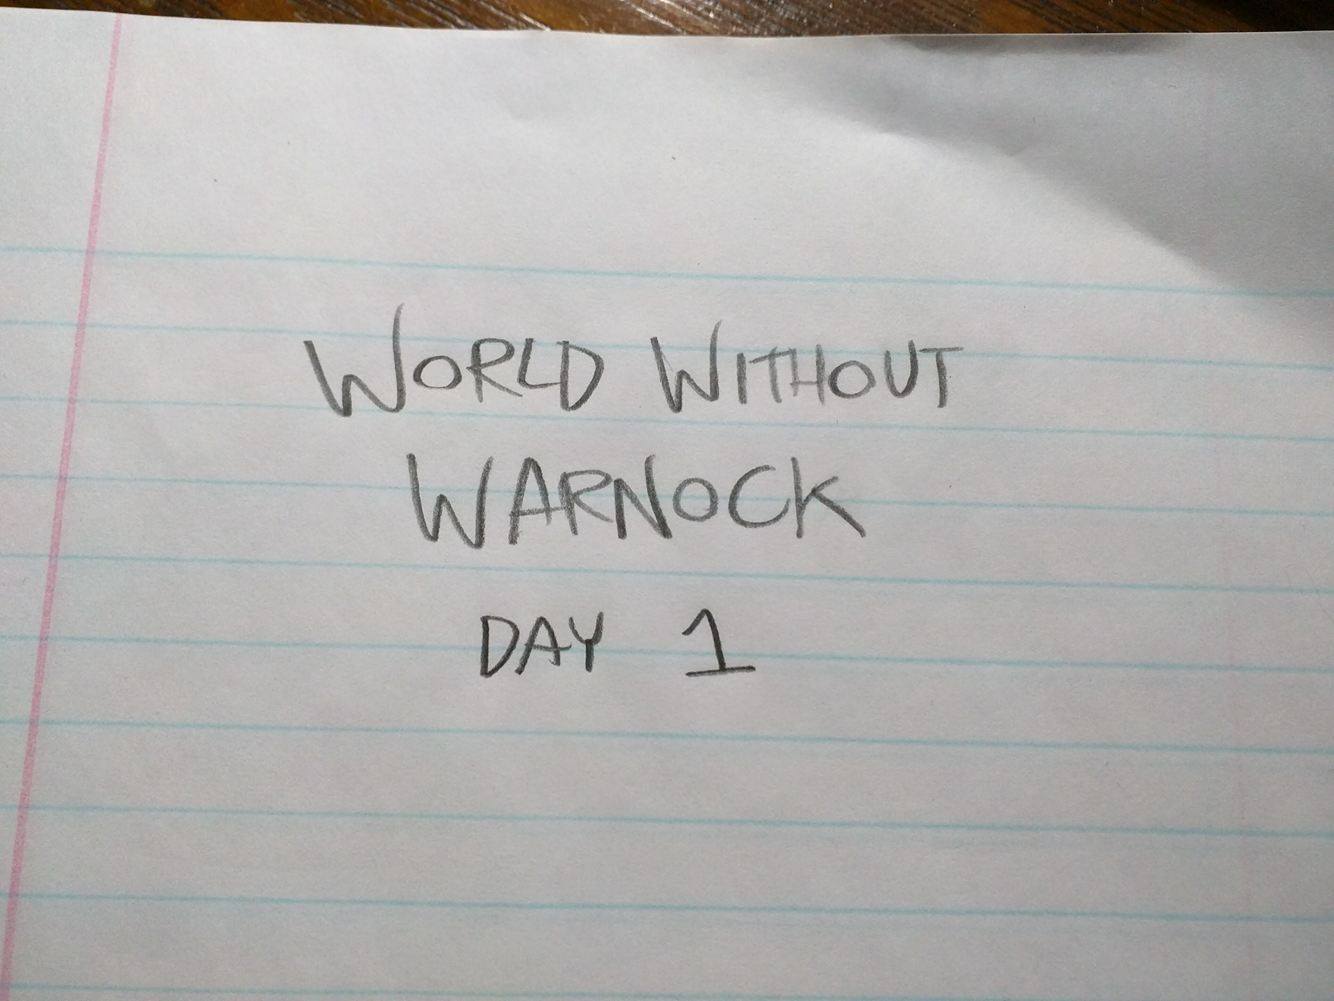 WORLD WITHOUT
WARNOCK
DAY 1